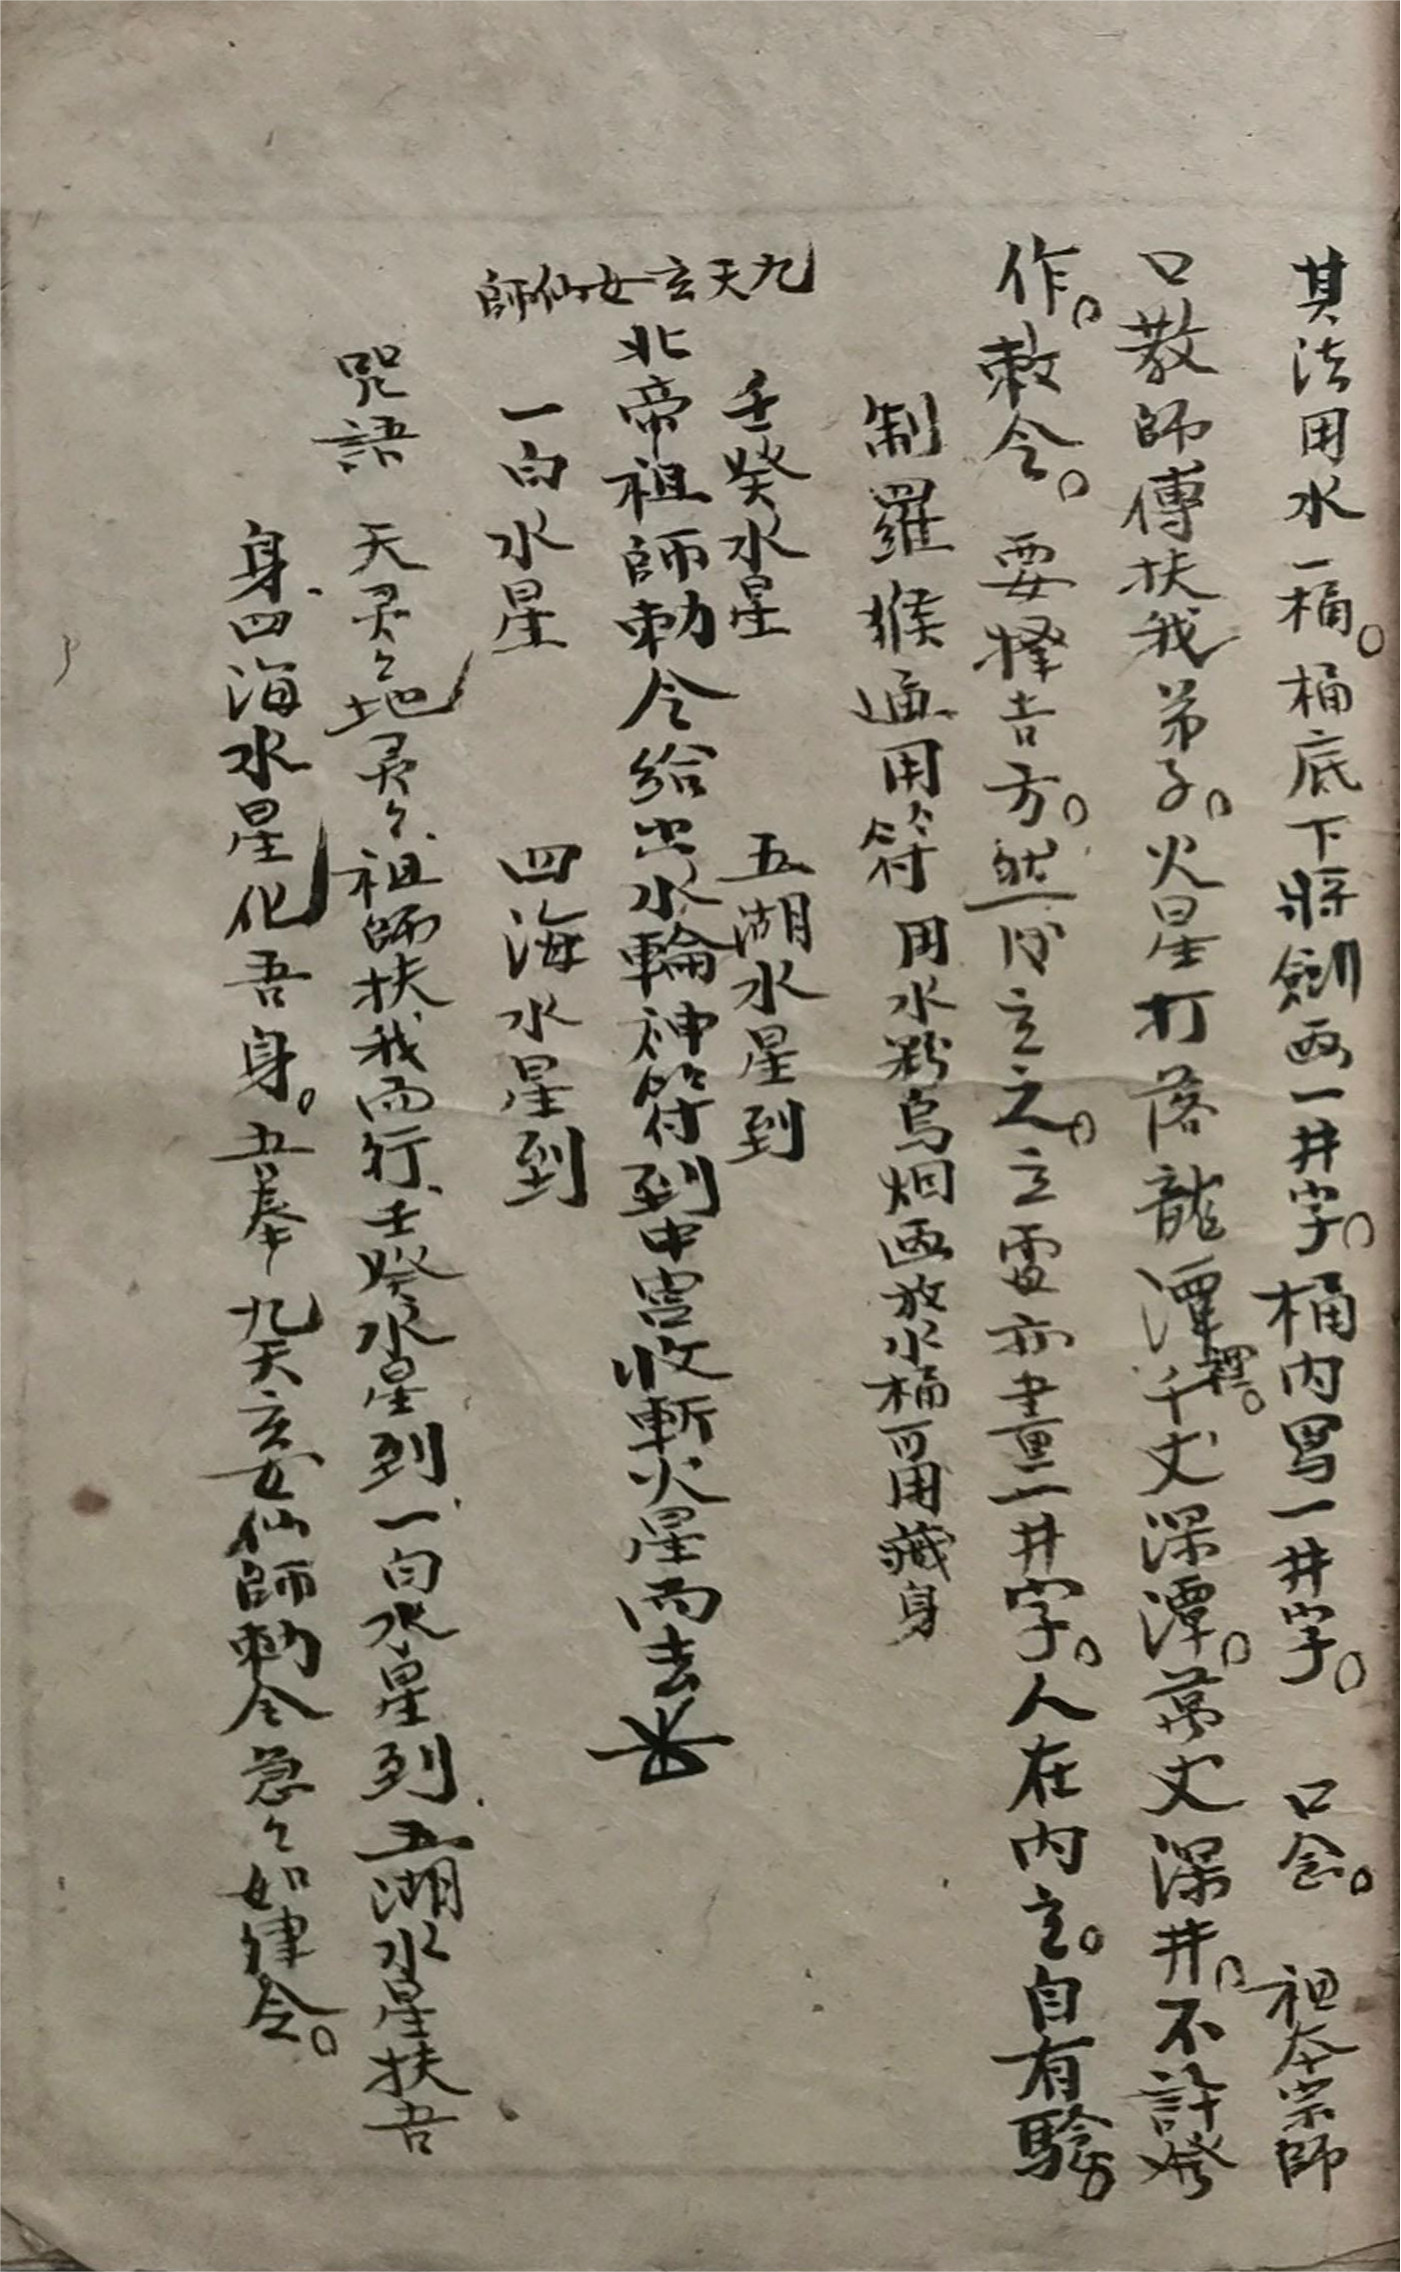 其法用水一桶。桶底下将劍画一井字。桶内寫一井字。 口念。 祖本宗師
口教師傅扶我弟子。火星打落龍潭千丈深潭。萬丈深井。不許發
作。敕令。要擇吉方。然後立之。立處亦畫一井字。人在内立。自有驗
制羅猴通用符 用水粉烏烟画放水桶可用藏身
九天玄女仙師
壬癸水星 五湖水星到
北帝祖師勅令給出水輪神符到中宫收斬火星而去
一白水星 四海水星到
咒語 天灵々地灵々祖師扶我而行壬癸水星列一白水星列五湖水星扶吾
身四海水星化吾身。吾奉九天玄女仙師勅令急々如律令。